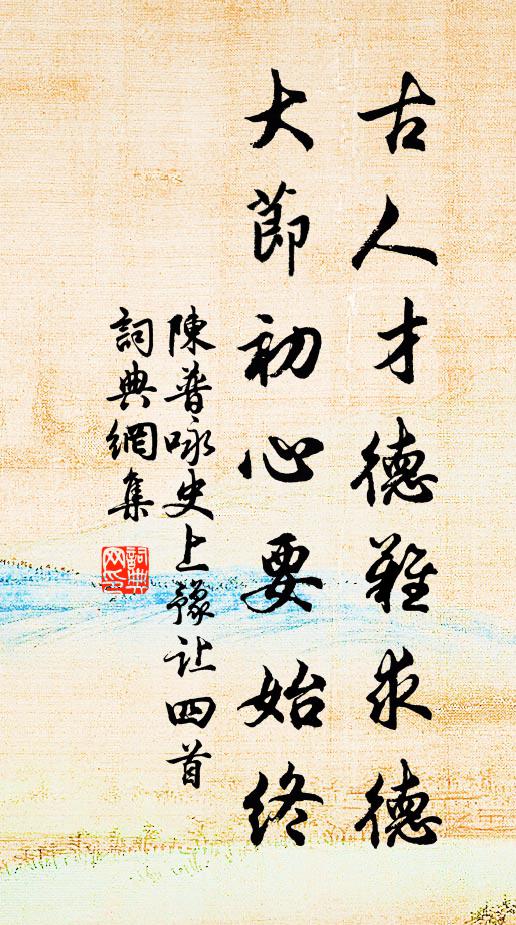 古人才德難求德
大節初心要始終
陳普咏史上豫让四首
詞典網集
詞典
网印